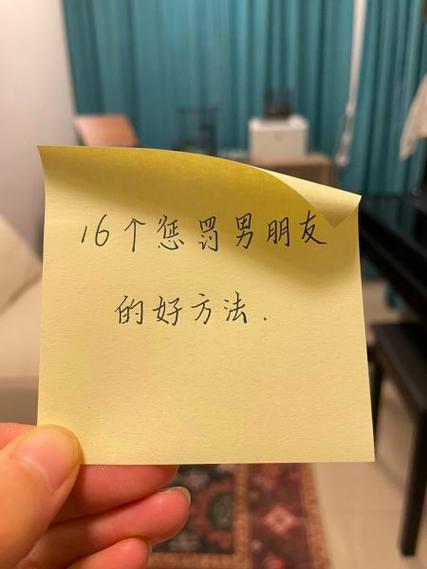 16个惩罚男朋友
的好方法.